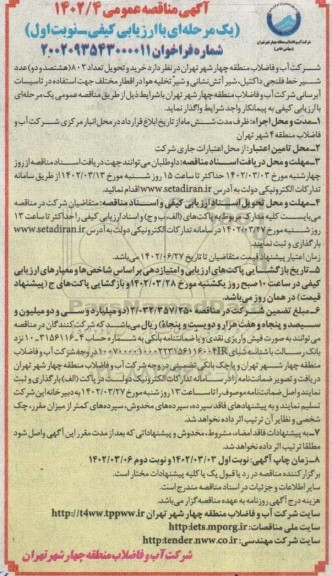 آگهی مناقصه عمومی ۱۴۰۲/۴
(یک مرحله‌ای با ارزیابی کیفی_نوبت اول)
شماره فراخوان ۲۰۰۲۰۹۳۵۴۳۰۰۰۰۱۱
شرکت آب و فاضلاب منطقه چهار شهر تهران در نظر دارد خرید و تحویل تعداد ۸۰۲ (هشتصد و دو) عدد
شیر خط فلنجی داکتیل، شیر آتش‌نشانی و شیر تخلیه هوا در اقطار مختلف جهت استفاده در تاسیسات
آبرسانی شرکت آب و فاضلاب منطقه چهار شهر تهران با شرایط ذیل از طریق مناقصه عمومی یک مرحله‌ای
با ارزیابی کیفی به پیمانکار واجد شرایط واگذار نماید.
۱-مدت و محل اجرا: ظرف مدت شش ماه از تاریخ ابلاغ قرارداد در محل انبار مرکزی شرکت آب و
فاضلاب منطقه ۴ شهر تهران
۲-محل تامین اعتبار: از محل اعتبارات جاری شرکت
۳-مهلت و محل دریافت اسناد مناقصه: داوطلبان می‌توانند جهت دریافت اسناد مناقصه از روز
چهارشنبه مورخ ۱۴۰۲/۰۳/۰۳ حداکثر تا ساعت ۱۵ روز شنبه مورخ ۱۴۰۲/۰۳/۱۳ از طریق سامانه
تدارکات الکترونیکی دولت به آدرس www.setadiran.ir اقدام نمایند.
۴-مهلت و محل تحویل اسناد ارزیابی کیفی و اسناد مناقصه: متقاضیان شرکت در مناقصه
می‌بایست کلیه مدارک مربوط به پاکت‌های (الف، ب و ج) و اسناد ارزیابی کیفی را حداکثر تا ساعت ۱۳
روز شنبه مورخ ۱۴۰۲/۰۳/۲۷ در سامانه تدارکات الکترونیکی دولت به آدرس www.setadiran.ir
بارگذاری و ثبت نمایند.
زمان اعتبار پیشنهاد قیمت متقاضیان تا تاریخ ۱۴۰۲/۰۶/۲۷ می‌باشد.
۵-تاریخ بازگشایی پاکت‌های ارزیابی و امتیازدهی بر اساس شاخص‌ها و معیارهای ارزیابی
کیفی در ساعت ۱۰ صبح روز یکشنبه مورخ ۱۴۰۲/۰۳/۲۸ و بازگشایی پاکت‌های ج (پیشنهاد
قیمت) در همان روز می‌باشد.
۶-مبلغ تضمین شرکت در مناقصه ۲/۰۳۲/۳۵۷/۲۵۰ (دو میلیارد و سی و دو میلیون و
سیصد و پنجاه و هفت هزار و دویست و پنجاه) ریال می‌باشد که شرکت کنندگان در مناقصه
می‌توانند به صورت فیش واریزی نقدی و یا ضمانتنامه بانکی به شماره حساب
بانک رسالت با شناسه شبای
منطقه چهار شهر تهران و یا چک بانکی تضمینی در وجه شرکت آب و فاضلاب منطقه چهار شهر تهران
دریافت و تصویر ضمانت‌نامه را در سامانه تدارکات الکترونیک دولت در پاکت (الف) بارگذاری و ثبت
نمایند و اصل ضمانتنامه موصوف را تا ساعت ۱۳ روز شنبه مورخ ۱۴۰۲/۰۳/۲۷ به دبیرخانه این شرکت
تسلیم نمایند و به پیشنهادهای فاقد سپرده، سپرده‌های مخدوش، سپرده‌های کمتر از میزان مقرر، چک
شخصی و نظایر آن ترتیب اثر داده نخواهد شد.
۷-به پیشنهادات فاقد امضاء، مشروط، مخدوش و پیشنهاداتی که بعد از مدت مقرر این آگهی واصل شود
مطلقا ترتیب اثر داده نخواهد شد.
۸-زمان چاپ آگهی: نوبت اول ۱۴۰۲/۰۳/۰۳ و نوبت دوم ۱۴۰۲/۰۳/۰۶
برگزارکننده مناقصه در رد یا قبول یک یا کلیه پیشنهادات مختار است.
سایر اطلاعات و جزئیات در اسناد مناقصه مندرج است.
هزینه درج آگهی روزنامه به عهده مناقصه‌گزار می‌باشد.
سایت شرکت آب و فاضلاب منطقه چهار شهر تهران http://t4ww.tppww.ir
سایت ملی مناقصات: http:iets.mporg.ir
سایت شرکت مهندسی: http:tender.nww.co.ir
شرکت آب و فاضلاب منطقه چهار شهر تهران